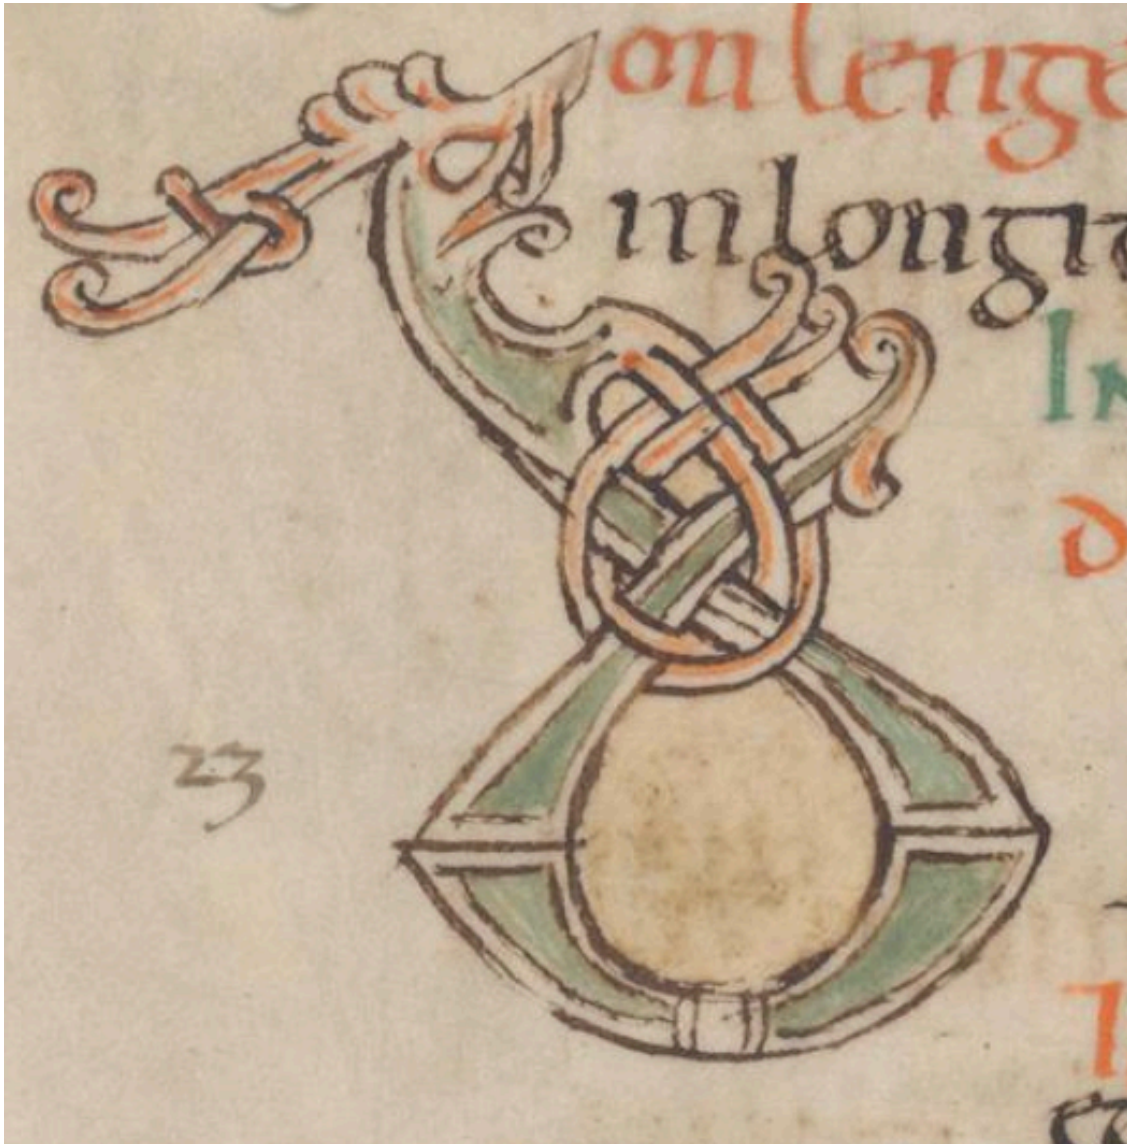 on lenge
in longit
In
d
23